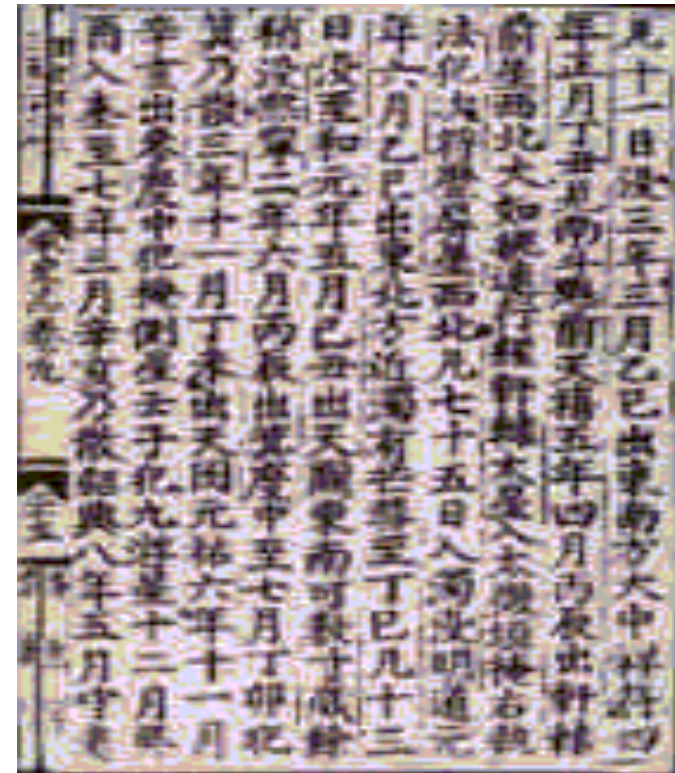 見十一日沒三年三月乙巳出東南方大中祥符四
年正月丁丑見南斗魁前天禧五年四月丙辰出軒轅
前星西北大如桃速行經軒轅太星入太微垣掩右執
法犯次將歷屏星西北凡七十五日入濁沒明道元
年六月乙巳出東北方近濁有芒彗至丁巳凡十三
日沒至和元年五月己丑出天關東南可數寸歲餘
稍沒熙寧二年六月丙辰出箕度中至七月丁卯犯
箕乃散三年十一月丁未出天囷元祐六年十一月
辛亥出參度中犯掩側星壬子犯九斿星十二月癸
酉入奎至七年三月辛亥乃散紹興八年五月守婁